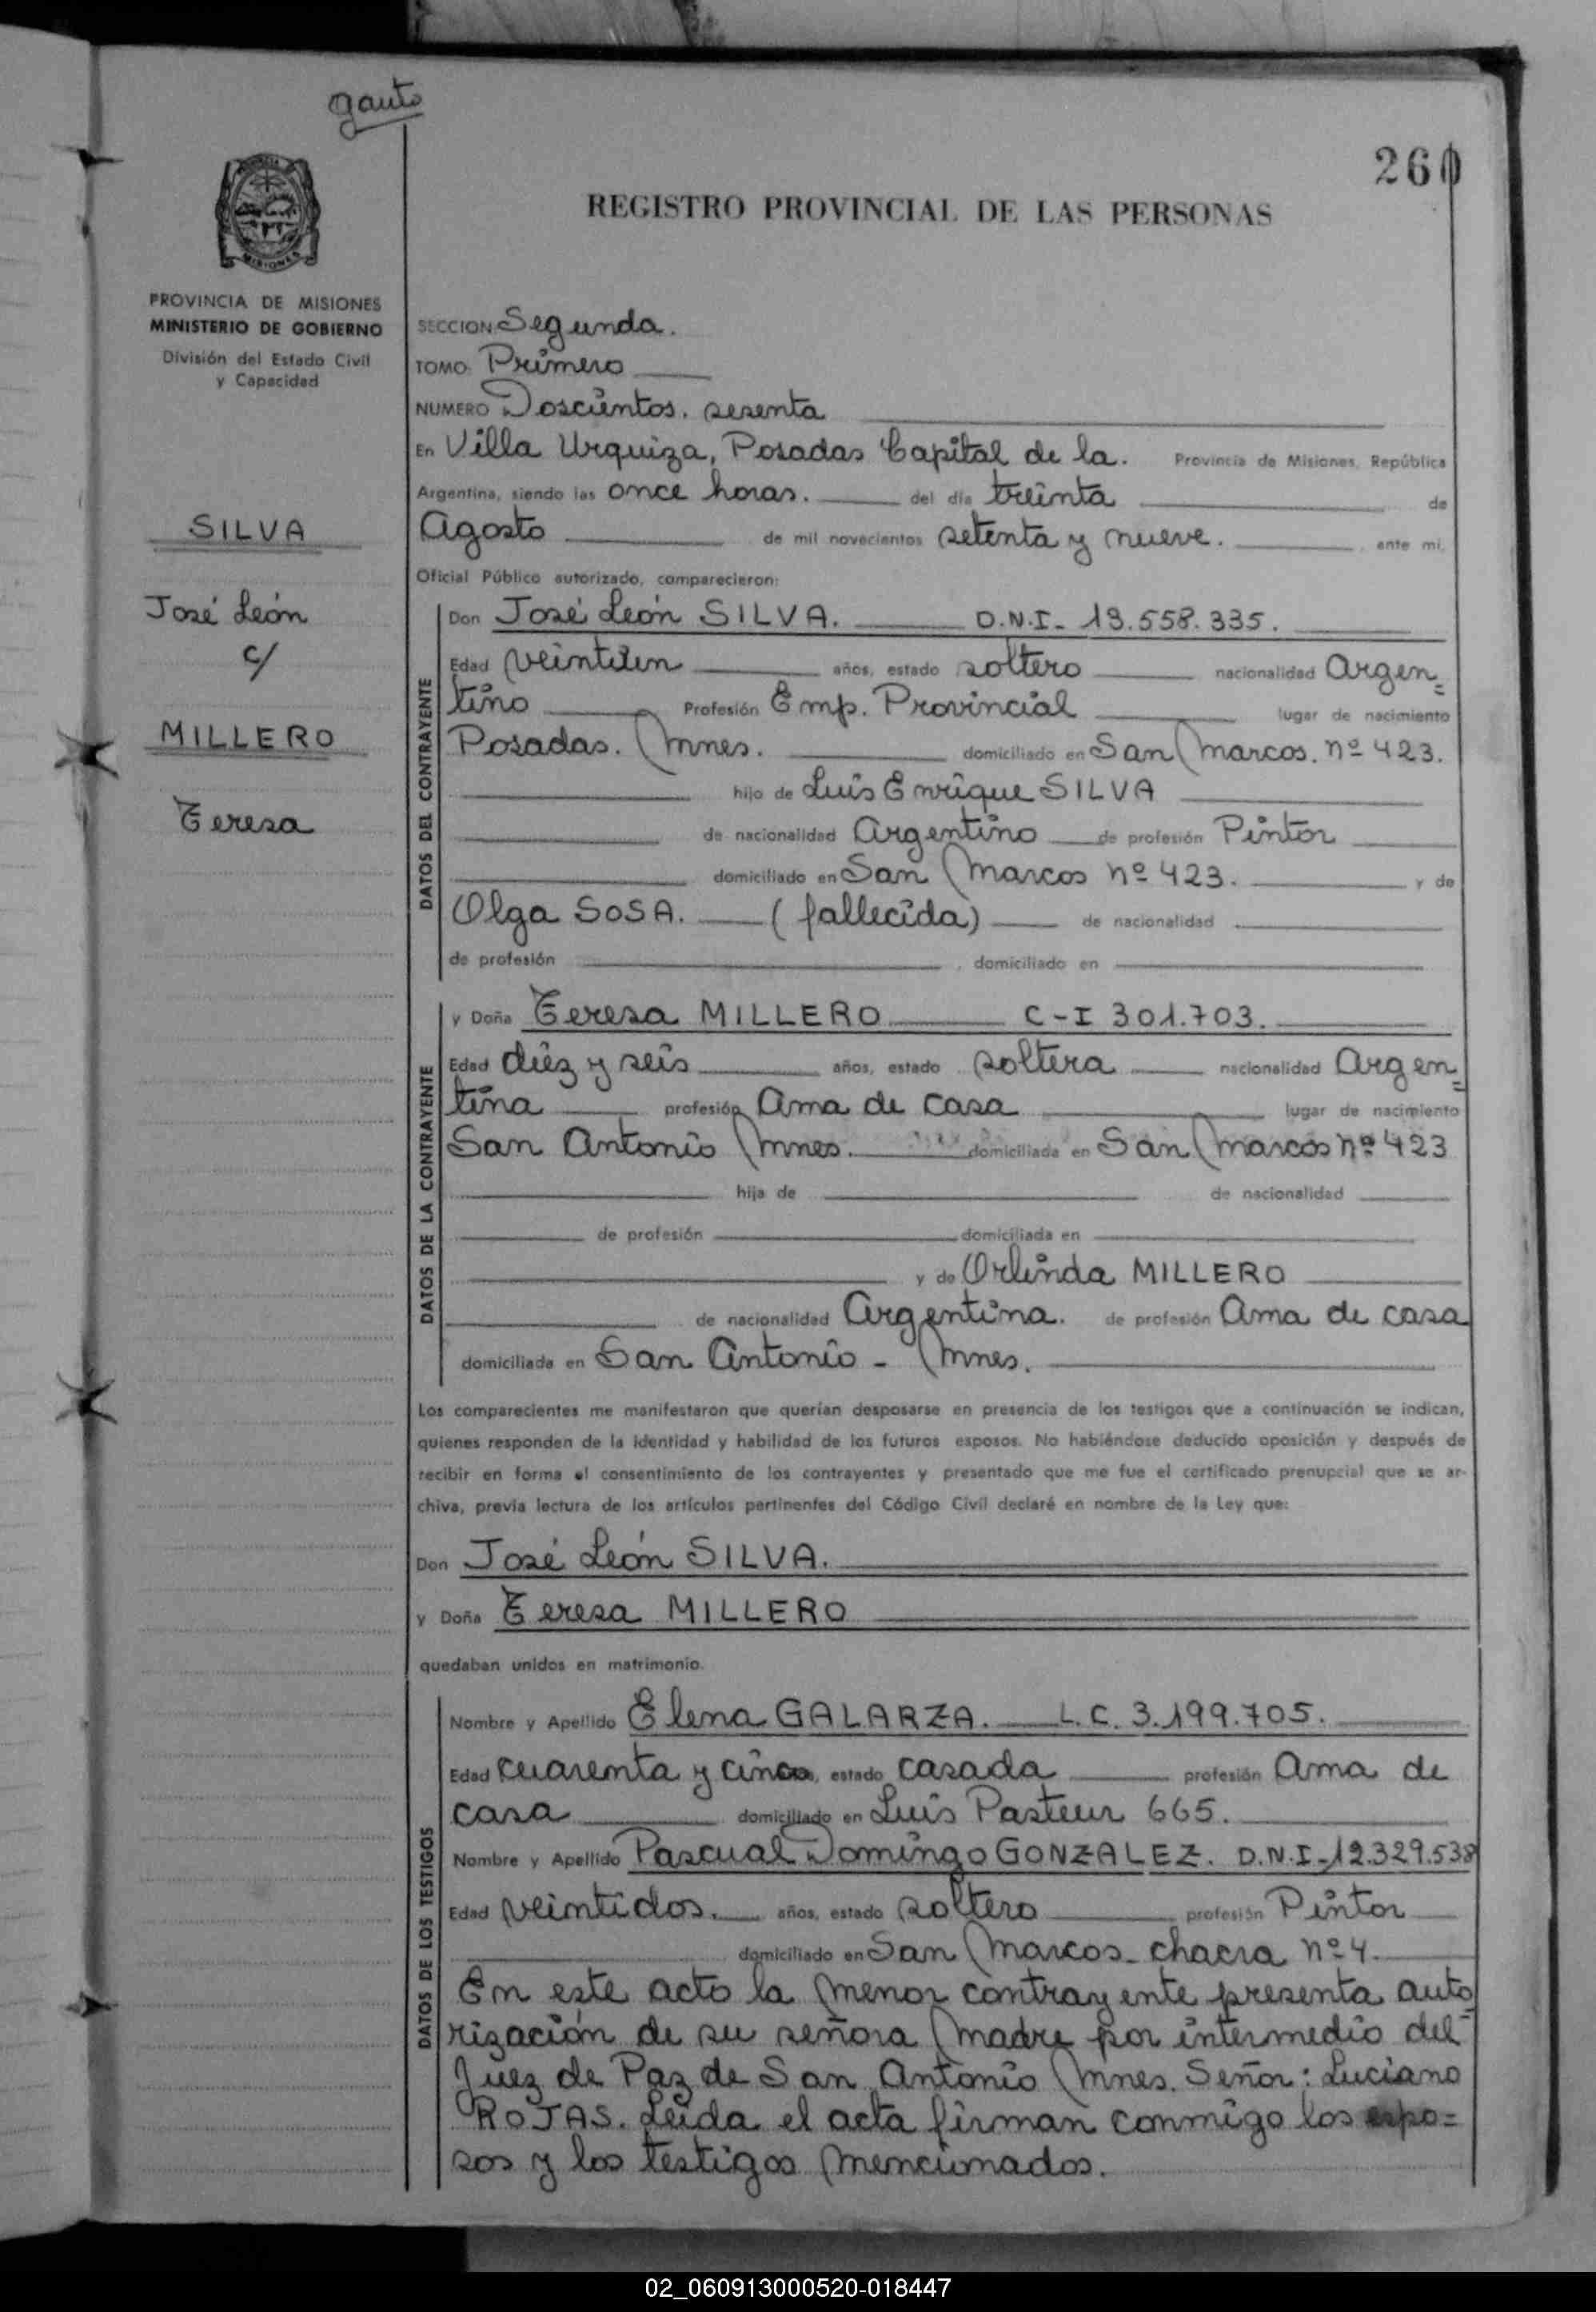 gauto
260
REGISTRO PROVINCIAL DE LAS PERSONAS
PROVINCIA
MISIONES
PROVINCIA DE MISIONES
MINISTERIO DE GOBIERNO
División del Estado Civil
y Capacidad
SILVA
José León
c/
MILLERO
Teresa
SECCION Segunda.
TOMO: Primero
NUMERO Doscientos. sesenta
En Villa Urquiza, Posadas Capital de la. Provincia de Misiones, República
Argentina, siendo las once horas. del día treinta de
Agosto de mil novecientos setenta y nueve. ante mi,
Oficial Público autorizado, comparecieron:
DATOS DEL CONTRAYENTE
Don José León SILVA. D.N.I- 13.558.335.
Edad veintiun años, estado soltero nacionalidad Argen=
tino Profesión Emp. Provincial lugar de nacimiento
Posadas. Mnes. domiciliado en San Marcos. nº 423.
hijo de Luis Enrique SILVA
de nacionalidad Argentino de profesión Pintor
domiciliado en San Marcos nº 423. y de
Olga SOSA. (fallecida) de nacionalidad
de profesión , domiciliado en
DATOS DE LA CONTRAYENTE
y Doña Teresa MILLERO C-I 301.703.
Edad diez y seis años, estado soltera nacionalidad Argen=
tina profesión Ama de casa lugar de nacimiento
San Antonio Mnes. domiciliada en San Marcos nº 423
hija de de nacionalidad
de profesión domiciliada en
y de Orlinda MILLERO
de nacionalidad Argentina. de profesión Ama de casa
domiciliada en San Antonio - Mnes.
Los comparecientes me manifestaron que querían desposarse en presencia de los testigos que a continuación se indican,
quienes responden de la identidad y habilidad de los futuros esposos. No habiéndose deducido oposición y después de
recibir en forma el consentimiento de los contrayentes y presentado que me fue el certificado prenupcial que se ar-
chiva, previa lectura de los artículos pertinentes del Código Civil declaré en nombre de la Ley que:
Don José León SILVA.
y Doña Teresa MILLERO
quedaban unidos en matrimonio.
DATOS DE LOS TESTIGOS
Nombre y Apellido Elena GALARZA. L.C. 3.199.705.
Edad cuarenta y cinco, estado casada profesión Ama de
casa domiciliado en Luis Pasteur 665.
Nombre y Apellido Pascual Domingo GONZALEZ. D.N.I-12.329.538
Edad veintidos. años, estado soltero profesión Pintor
domiciliado en San Marcos- chacra nº 4.
En este acto la menor contrayente presenta auto=
rización de su señora madre por intermedio del
Juez de Paz de San Antonio Mnes. Señor: Luciano
ROJAS. Leida el acta firman conmigo los espo=
sos y los testigos mencionados.
02_060913000520-018447